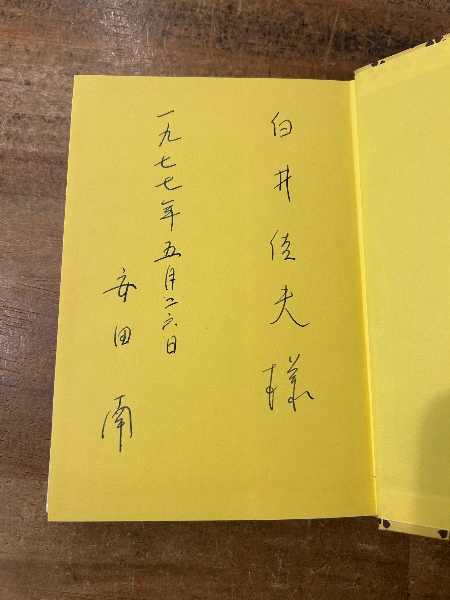 白井佳夫様
一九七七年五月二六日
安田南